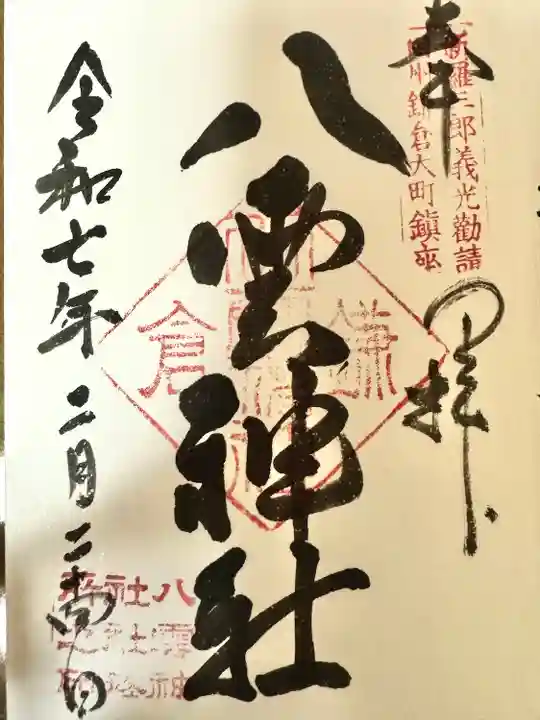 奉拝
新羅三郎義光勧請
鎌倉大町鎮座
八雲神社
鎌倉
令和七年二月二十四日